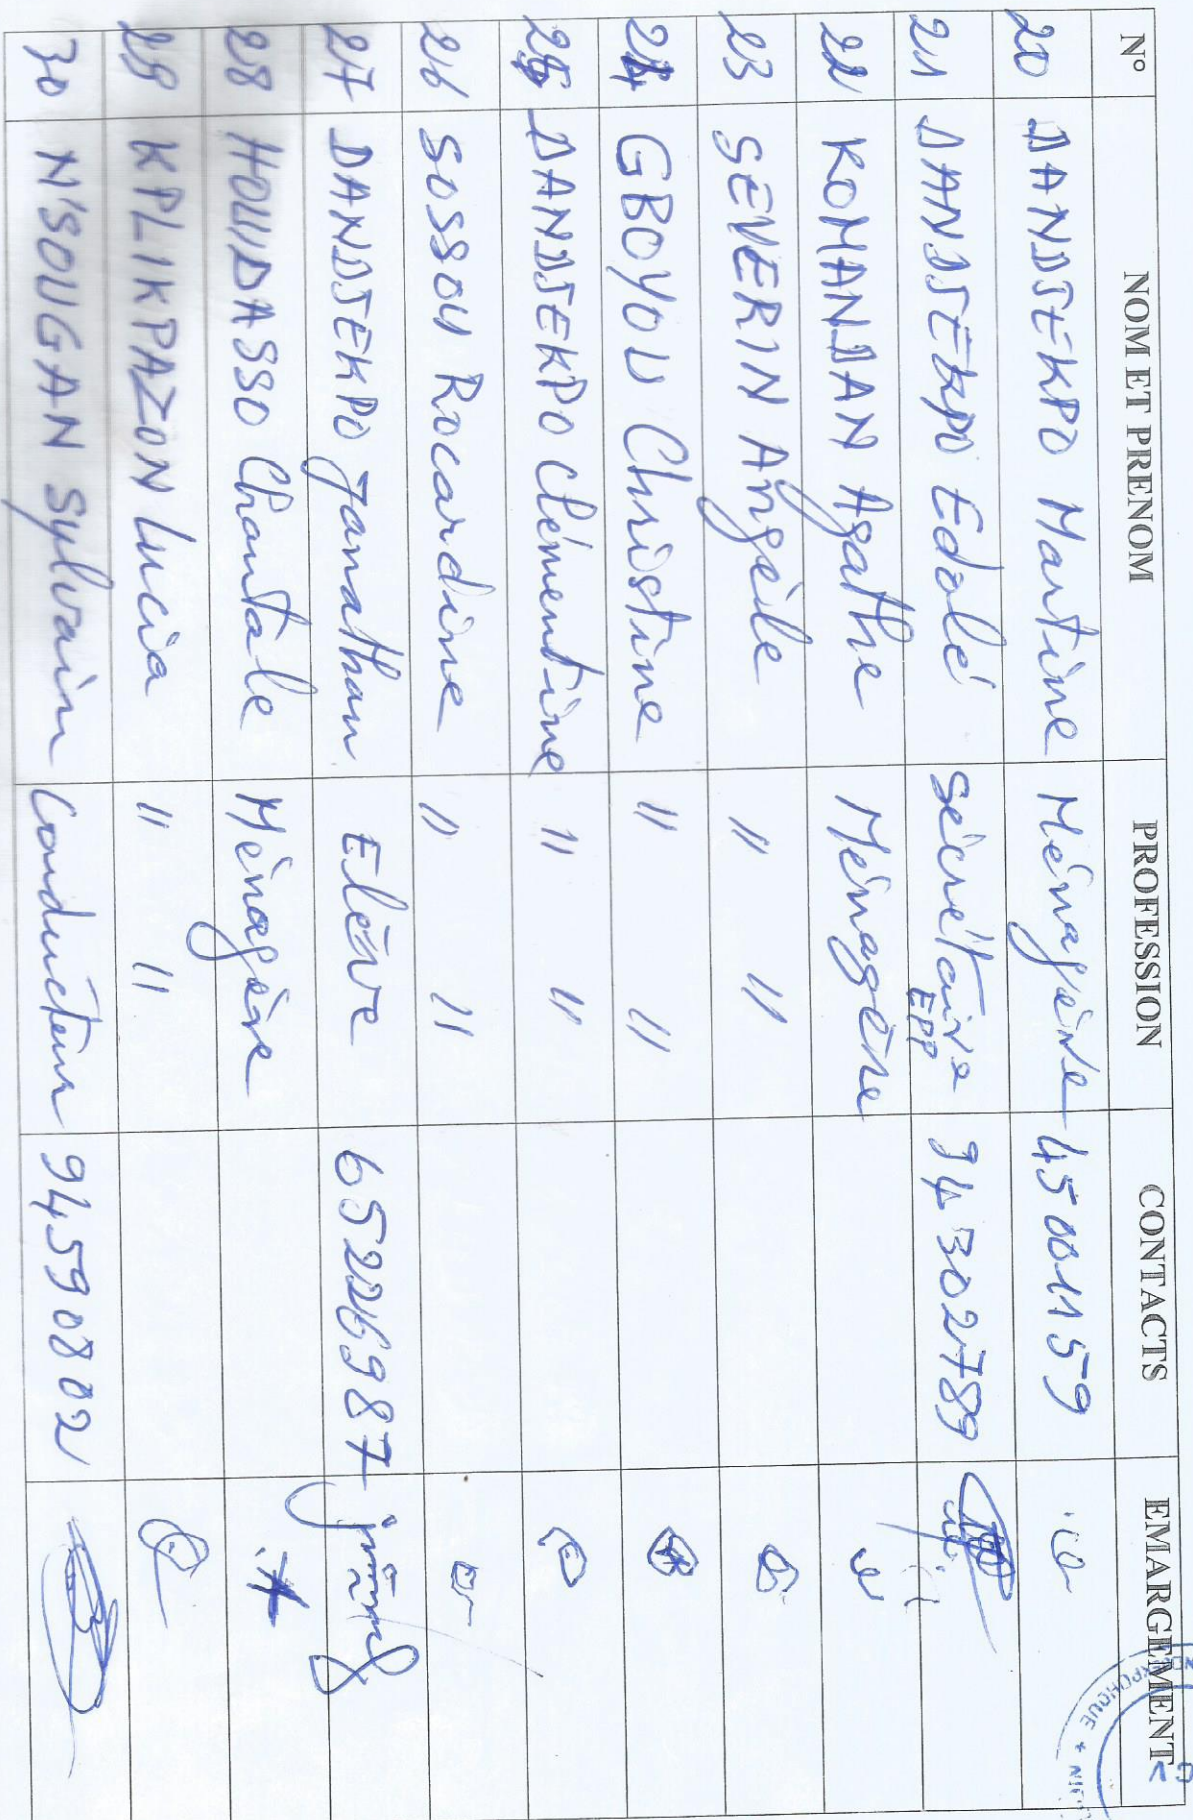 N° NOM ET PRENOM PROFESSION CONTACTS EMARGEMENT
20 DANDJEKPO Martine Ménagère 45001159
21 DANDJEKPO Edolé Sécrétaire EPP 94302789
22 KOMANDAN Agathe Ménagère
23 SEVERIN Angèle " "
24 GBOYOU Christine " "
25 DANDJEKPO Clémentine " "
26 SOSSOU Rocardine " "
27 DANDJEKPO Jonathan Elève 65226987
28 HOUDASSO Chantale Ménagère
29 KPLIKPAZON Lucia " "
30 N'SOUGAN Sylvain Conducteur 94590802